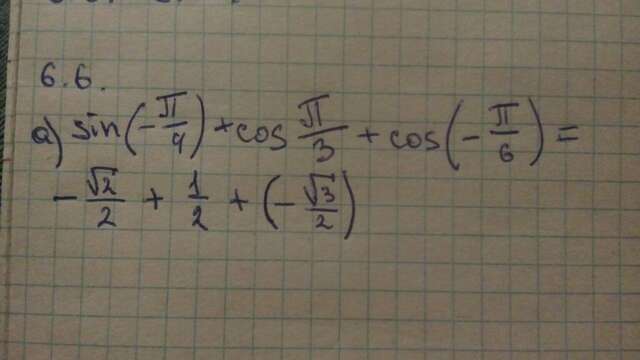 6.6.
а) sin(-π/4) + cos π/3 + cos(-π/6) =
-√2/2 + 1/2 + (-√3/2)